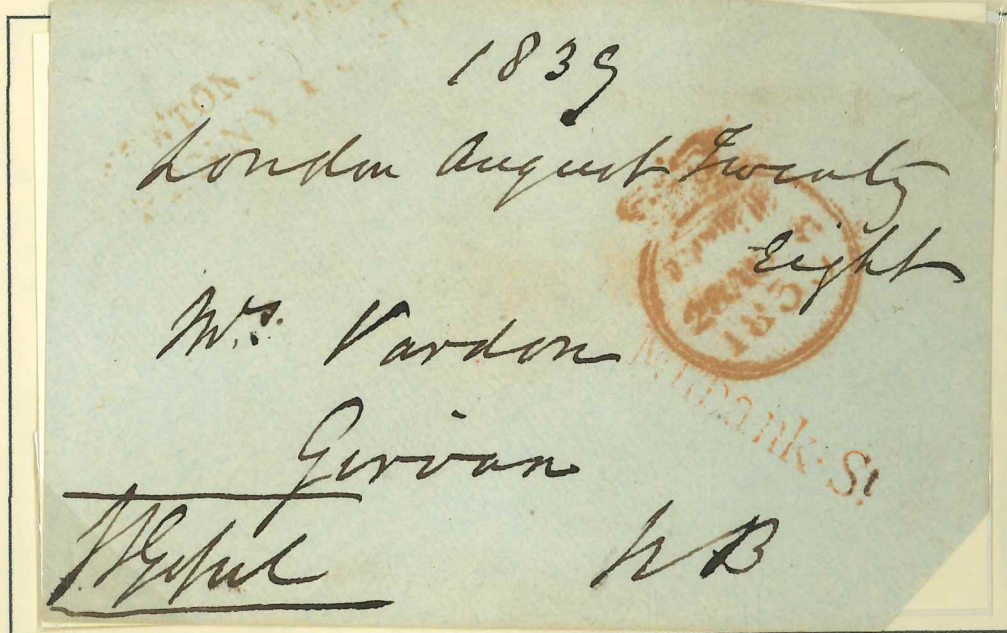 1839
London August Twenty
Eight
Mrs. Vardon
Girvan
N B
Millbank: St